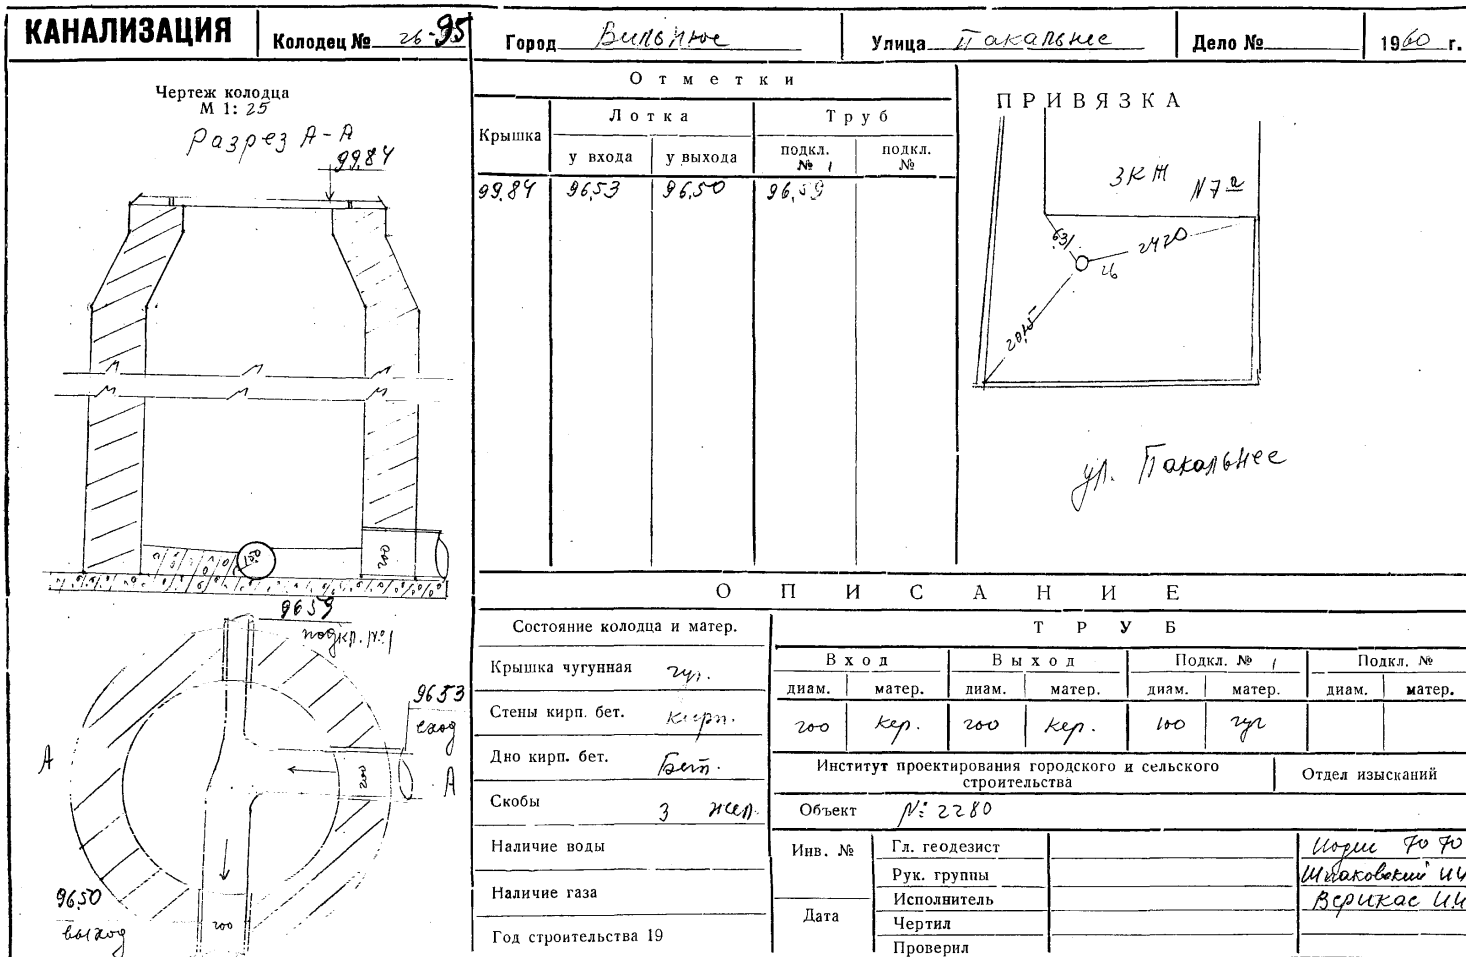 КАНАЛИЗАЦИЯ
Колодец № 26-95
Город Вильнюс
Улица Пакальнес
Дело №
1960 г.
Чертеж колодца
М 1: 25
Разрез А-А
99.84
150
200
9659
подкл. №1
9653
вход
А
А
200
9650
выход
200
Отметки
Крышка
Лотка
Труб
у входа
у выхода
подкл. № 1
подкл. №
99.84
96,53
96,50
96,59
ПРИВЯЗКА
3КЖ
N7а
631
2420
26
ул. Пакальнес
ОПИСАНИЕ
Состояние колодца и матер.
Крышка чугунная чуг.
Стены кирп. бет. кирп.
Дно кирп. бет. Бет.
Скобы 3 жел.
Наличие воды
Наличие газа
Год строительства 19
ТРУБ
Вход
Выход
Подкл. № 1
Подкл. №
диам. матер. диам. матер. диам. матер. диам. матер.
200 кер. 200 кер. 100 чуг
Институт проектирования городского и сельского
строительства
Отдел изысканий
Объект №: 2280
Инв. №
Дата
Гл. геодезист
Рук. группы
Исполнитель
Чертил
Проверил